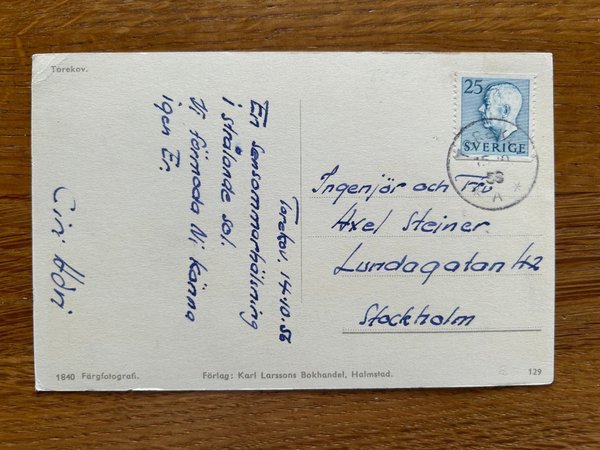 Torekov.
Torekov. 14.10.56
En sensommarhälsning
i strålande sol.
Vi förmoda Ni känna
igen Er.
25
SVERIGE
56
A
Ingenjör och Fru
Axel Steiner
Lundagatan 42
Stockholm
1840 Färgfotografi.
Förlag: Karl Larssons Bokhandel, Halmstad.
129